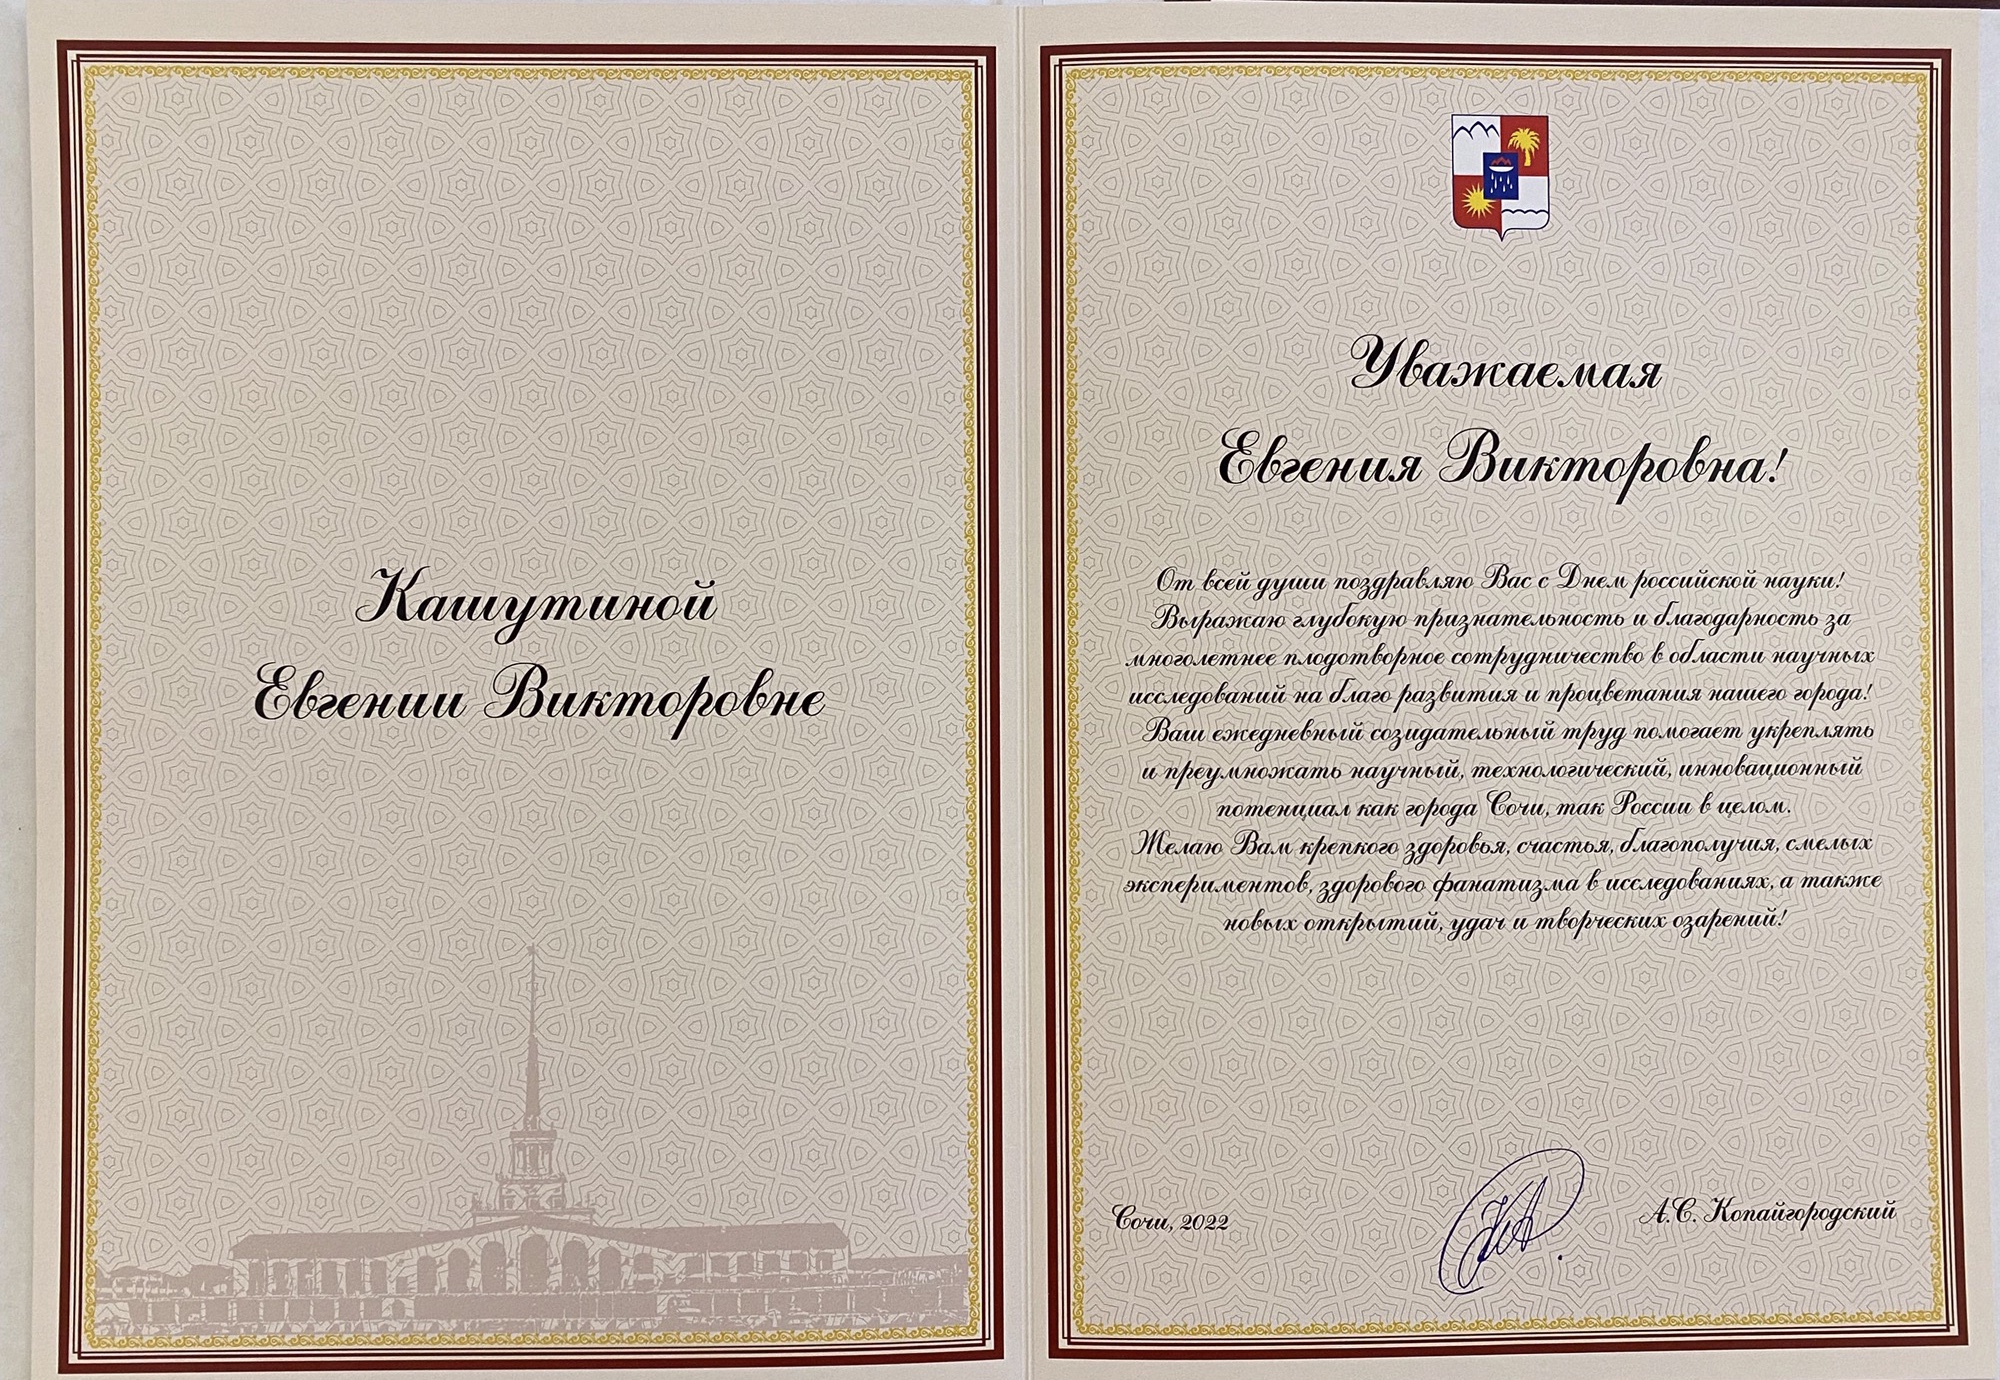 Кашутиной
Евгении Викторовне
Уважаемая
Евгения Викторовна!
От всей души поздравляю Вас с Днем российской науки!
Выражаю глубокую признательность и благодарность за
многолетнее плодотворное сотрудничество в области научных
исследований на благо развития и процветания нашего города!
Ваш ежедневный созидательный труд помогает укреплять
и преумножать научный, технологический, инновационный
потенциал как города Сочи, так России в целом.
Желаю Вам крепкого здоровья, счастья, благополучия, смелых
экспериментов, здорового фанатизма в исследованиях, а также
новых открытий, удач и творческих озарений!
Сочи, 2022
А.С. Копайгородский